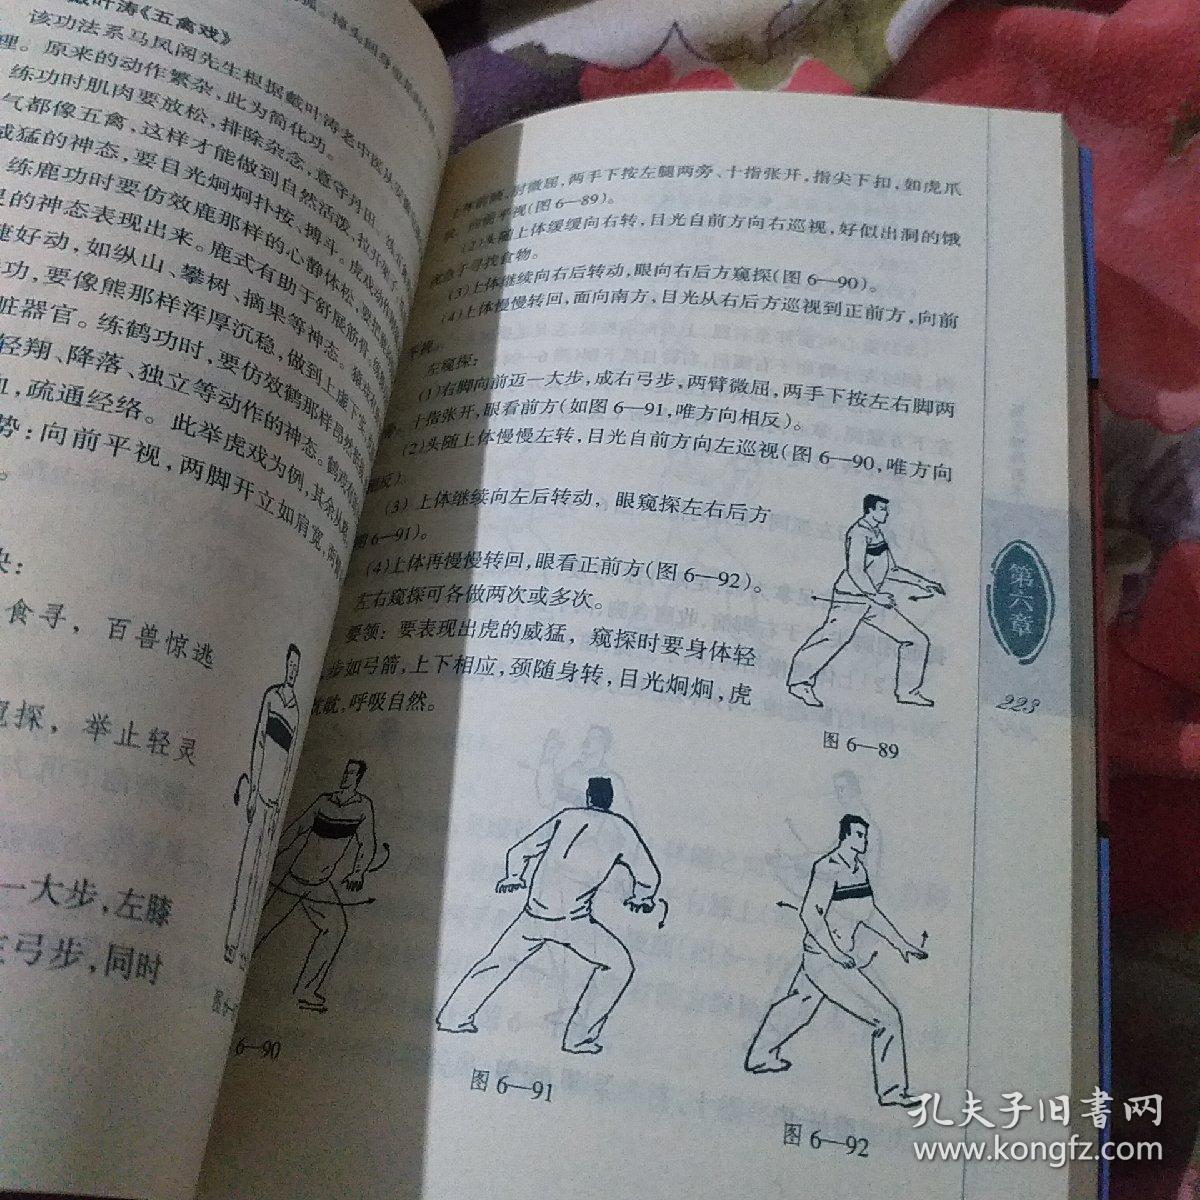 戴叶涛《五禽戏》
该功法系马凤阁先生根据戴叶涛老中医
理。原来的动作繁杂，此为简化功。
练功时肌肉要放松，排除杂念，意守丹田。
气都像五禽，这样才能做到自然活泼，
威猛的神态，要目光炯炯扑按、搏斗。虎戏
练鹿功时要仿效鹿那样的心静体松，要把
的神态表现出来。鹿式有助于舒展筋骨。
捷好动，如纵山、攀树、摘果等神态。
功，要像熊那样浑厚沉稳，做到上虚下实，
脏器官。练鹤功时，要仿效鹤那样昂然
轻翔、降落、独立等动作的神态。
血，疏通经络。此举虎戏为例，其余从略。
势：向前平视，两脚开立如肩宽，
诀：
食寻，百兽惊逃
窥探，举止轻灵
一大步，左膝
左弓步，同时
肘微屈，两手下按左腿两旁、十指张开，指尖下扣，如虎爪
平视(图6—89)。
(2)头随上体缓缓向右转，目光自前方向右巡视，好似出洞的饿
虎急于寻找食物。
(3)上体继续向右后转动，眼向右后方窥探(图6—90)。
(4)上体慢慢转回，面向南方，目光从右后方巡视到正前方，向前
平视。
左窥探：
(1)右脚向前迈一大步，成右弓步，两臂微屈，两手下按左右脚两
十指张开，眼看前方(如图6—91，唯方向相反)。
(2)头随上体慢慢左转，目光自前方向左巡视(图6—90，唯方向
相反)。
(3)上体继续向左后转动，眼窥探左右后方
图6—91)。
(4)上体再慢慢转回，眼看正前方(图6—92)。
左右窥探可各做两次或多次。
要领：要表现出虎的威猛，窥探时要身体轻
步如弓箭，上下相应，颈随身转，目光炯炯，虎
眈，呼吸自然。
第六章
223
图6—89
6—90
图6—91
图6—92
孔夫子旧书网
www.kongfz.com